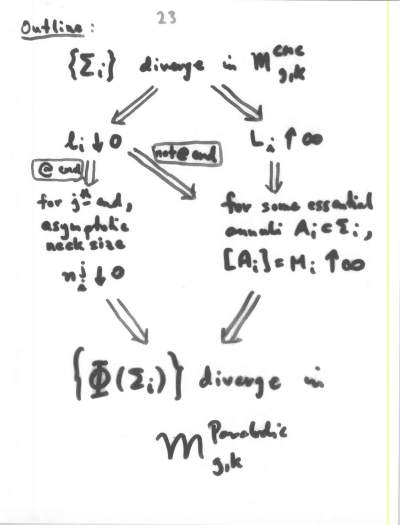 23
Outline:
{Σi} diverge in M^cmc_g,k
li ↓ 0
Li ↑ ∞
not @ end
@ end
for j^th end,
asymptotic
neck size
n^j_i ↓ 0
for some essential
annuli Ai ⊂ Σi,
[Ai] = Mi ↑ ∞
{Φ(Σi)} diverge in
M^Parabolic_g,k